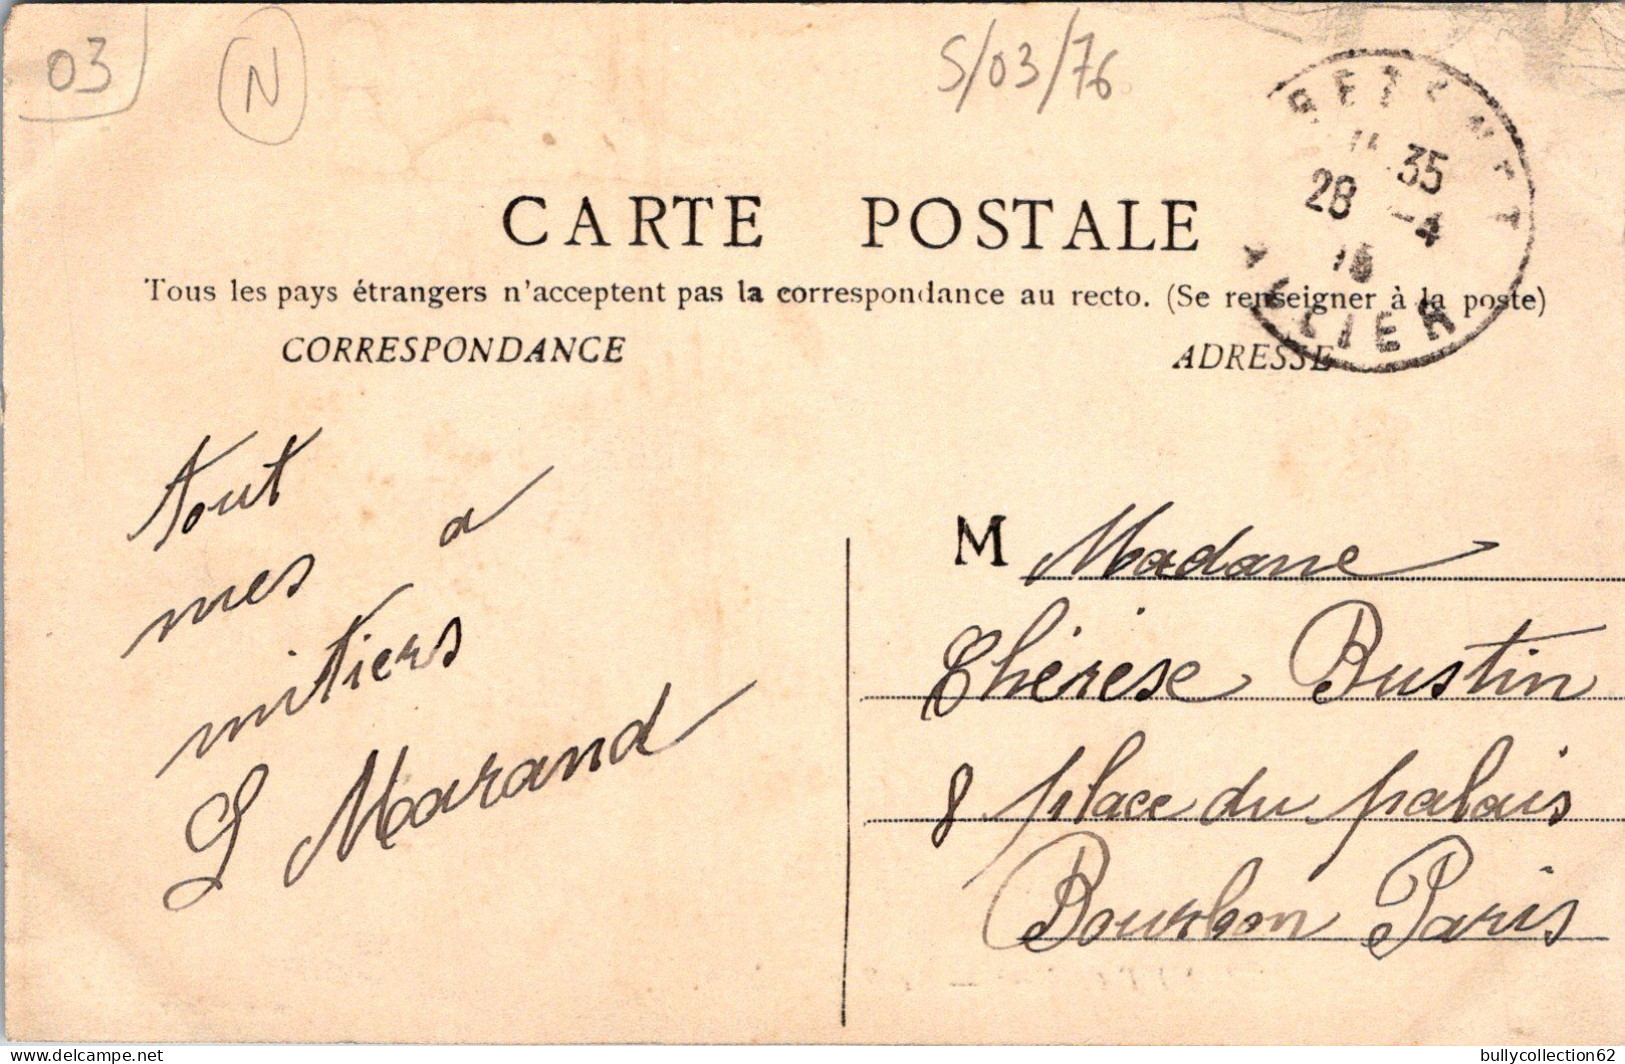 03
N
S/03/76
35
28 -4
ALLIER
CARTE POSTALE
Tous les pays étrangers n'acceptent pas la correspondance au recto. (Se renseigner à la poste)
CORRESPONDANCE
ADRESSE
Tout
mes a
mitiers
L Marand
M Madame
Thérèse Bustin
8 place du palais
Bourbon Paris
bullycollection62